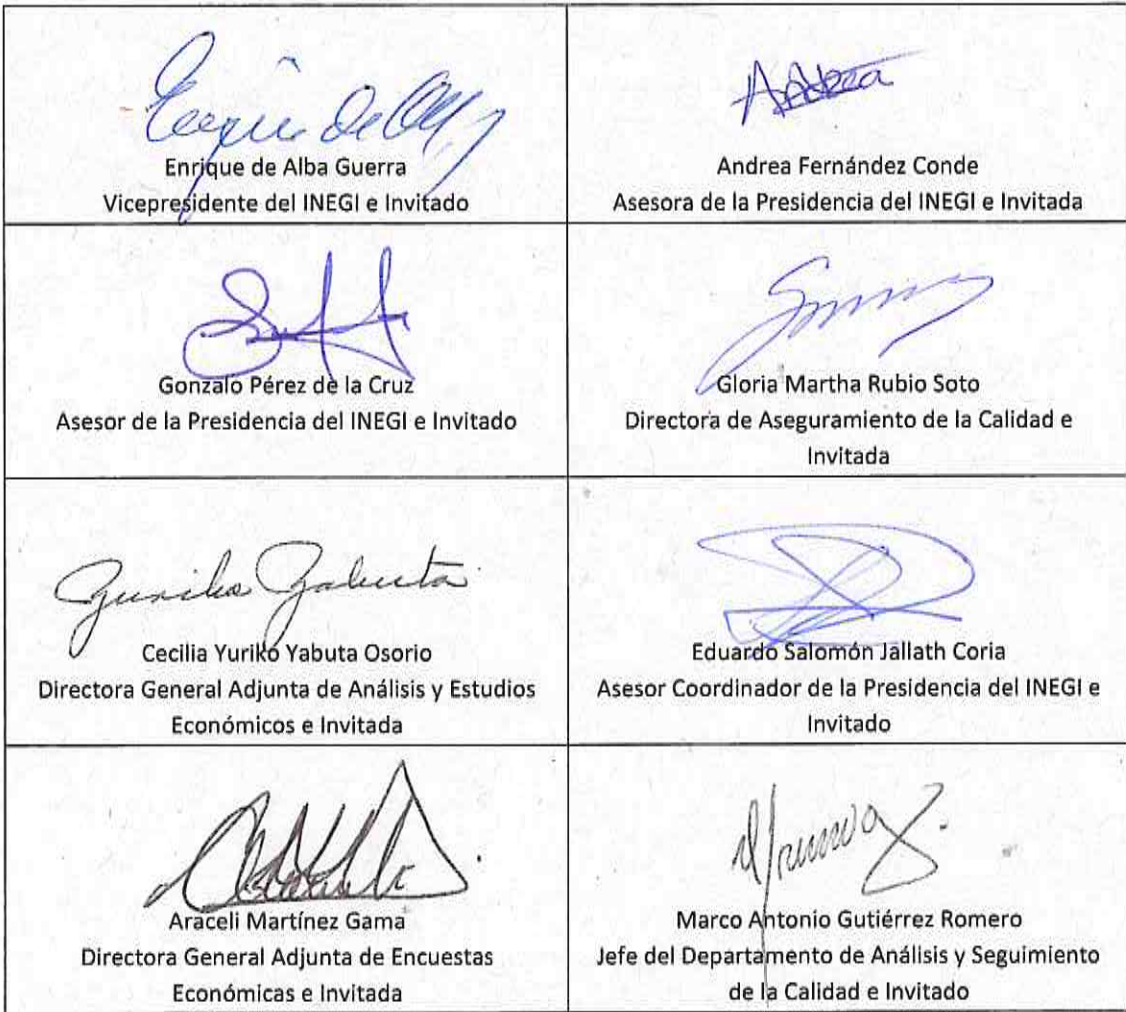 Enrique de Alba Guerra
Vicepresidente del INEGI e Invitado
Andrea
Andrea Fernández Conde
Asesora de la Presidencia del INEGI e Invitada
Gonzalo Pérez de la Cruz
Asesor de la Presidencia del INEGI e Invitado
Gloria Martha Rubio Soto
Directora de Aseguramiento de la Calidad e
Invitada
Yuriko Yabuta
Cecilia Yuriko Yabuta Osorio
Directora General Adjunta de Análisis y Estudios
Económicos e Invitada
Eduardo Salomón Jallath Coria
Asesor Coordinador de la Presidencia del INEGI e
Invitado
Araceli Martínez Gama
Directora General Adjunta de Encuestas
Económicas e Invitada
Marco Antonio Gutiérrez Romero
Jefe del Departamento de Análisis y Seguimiento
de la Calidad e Invitado